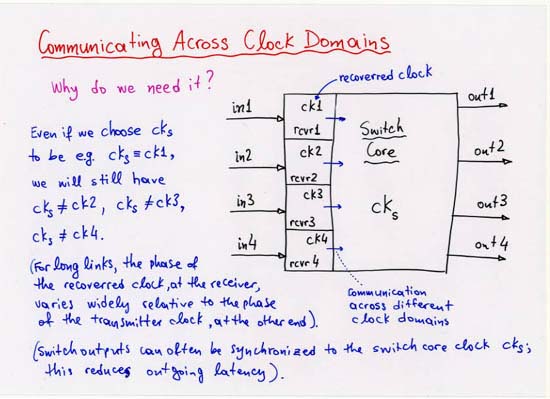 Communicating Across Clock Domains
Why do we need it?
recoverred clock
Even if we choose cks
to be eg. cks ≡ ck1,
we will still have
cks ≠ ck2, cks ≠ ck3,
cks ≠ ck4.
(For long links, the phase of
the recoverred clock, at the receiver,
varies widely relative to the phase
of the transmitter clock, at the other end).
(Switch outputs can often be synchronized to the switch core clock cks;
this reduces outgoing latency).
in1
in2
in3
in4
ck1
rcvr1
ck2
rcvr2
ck3
rcvr3
ck4
rcvr4
Switch
Core
cks
out1
out2
out3
out4
communication
across different
clock domains